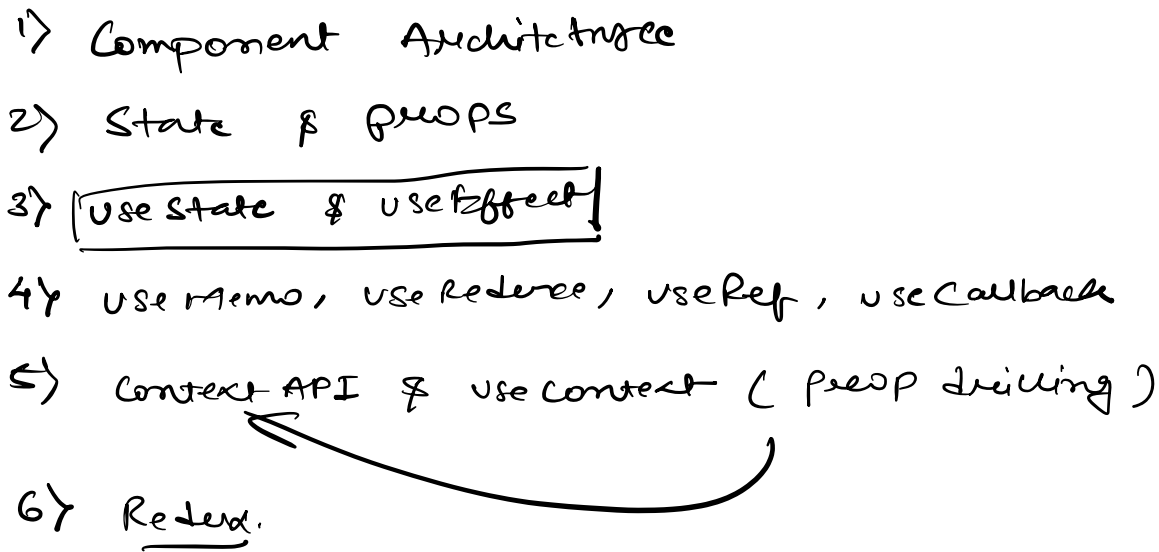 1) Component Architcture
2) State & props
3) useState & useEffect
4) useMemo, useReducer, useRef, useCallback
5) Context API & useContext ( Prop drilling )
6) Redux.